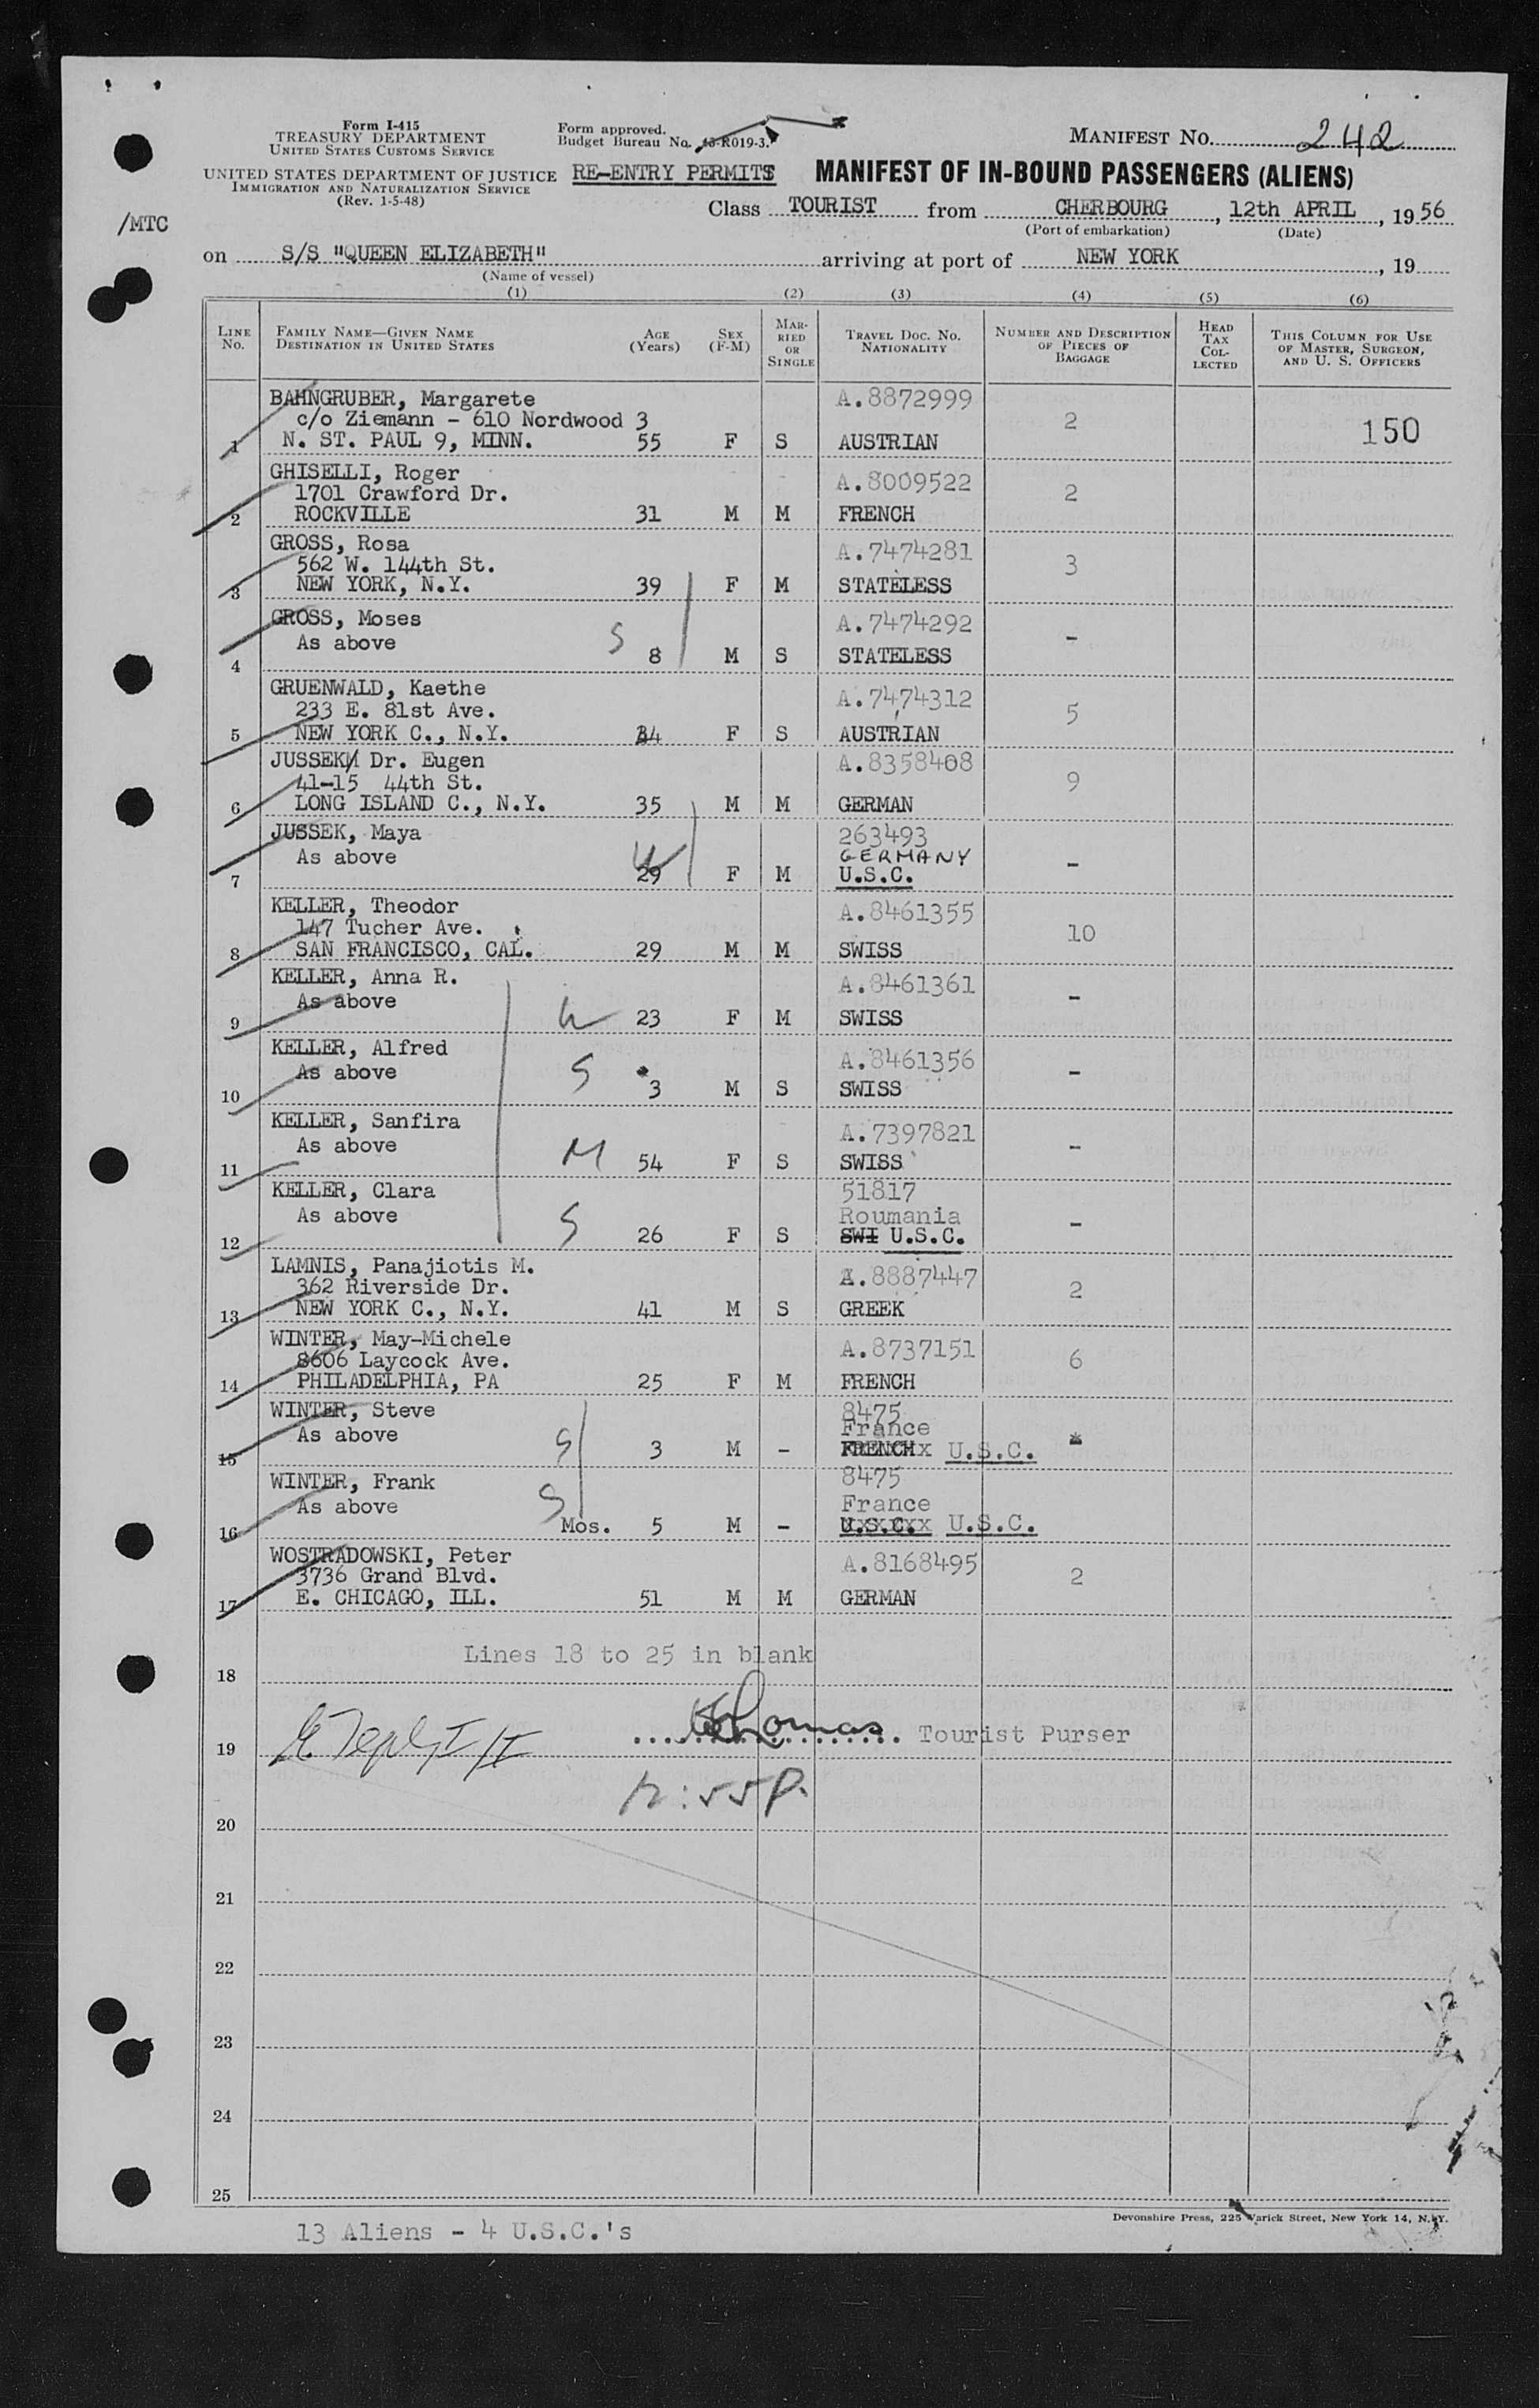 Form I-415
TREASURY DEPARTMENT
UNITED STATES CUSTOMS SERVICE
UNITED STATES DEPARTMENT OF JUSTICE
IMMIGRATION AND NATURALIZATION SERVICE
(Rev. 1-5-48)
/MTC
Form approved.
Budget Bureau No. 43-R019-3.
RE-ENTRY PERMITS
MANIFEST NO. 242
MANIFEST OF IN-BOUND PASSENGERS (ALIENS)
Class TOURIST from CHERBOURG, 12th APRIL, 1956
(Port of embarkation) (Date)
on S/S "QUEEN ELIZABETH" arriving at port of NEW YORK, 19
(Name of vessel)
(1) (2) (3) (4) (5) (6)
LINE No. FAMILY NAME—GIVEN NAME DESTINATION IN UNITED STATES AGE (Years) SEX (F-M) MARRIED OR SINGLE TRAVEL DOC. NO. NATIONALITY NUMBER AND DESCRIPTION OF PIECES OF BAGGAGE HEAD TAX COLLECTED THIS COLUMN FOR USE OF MASTER, SURGEON, AND U. S. OFFICERS
BAHNGRUBER, Margarete A.8872999
c/o Ziemann - 610 Nordwood 3 2 150
1 N. ST. PAUL 9, MINN. 55 F S AUSTRIAN
GHISELLI, Roger A.8009522
1701 Crawford Dr. 2
2 ROCKVILLE 31 M M FRENCH
GROSS, Rosa A.7474281
562 W. 144th St. 3
3 NEW YORK, N.Y. 39 F M STATELESS
GROSS, Moses A.7474292
As above S -
4 8 M S STATELESS
GRUENWALD, Kaethe A.7474312
233 E. 81st Ave. 5
5 NEW YORK C., N.Y. 34 F S AUSTRIAN
JUSSEK, Dr. Eugen A.8358408
41-15 44th St. 9
6 LONG ISLAND C., N.Y. 35 M M GERMAN
JUSSEK, Maya 263493
As above W GERMANY -
7 29 F M U.S.C.
KELLER, Theodor A.8461355
147 Tucher Ave. 10
8 SAN FRANCISCO, CAL. 29 M M SWISS
KELLER, Anna R. A.8461361
As above W -
9 23 F M SWISS
KELLER, Alfred A.8461356
As above S -
10 3 M S SWISS
KELLER, Sanfira A.7397821
As above M -
11 54 F S SWISS
KELLER, Clara 51817
As above S Roumania -
12 26 F S SWI U.S.C.
LAMNIS, Panajiotis M. A.8887447
362 Riverside Dr. 2
13 NEW YORK C., N.Y. 41 M S GREEK
WINTER, May-Michele A.8737151
8606 Laycock Ave. 6
14 PHILADELPHIA, PA 25 F M FRENCH
WINTER, Steve 8475
As above S France
15 3 M - FRENCH U.S.C.
WINTER, Frank 8475
As above S France
16 Mos. 5 M - U.S.C. U.S.C.
WOSTRADOWSKI, Peter A.8168495
3736 Grand Blvd. 2
17 E. CHICAGO, ILL. 51 M M GERMAN
Lines 18 to 25 in blank
18
Thomas Tourist Purser
19
12:55P.
20
21
22
23
24
25
Devonshire Press, 225 Varick Street, New York 14, N.Y.
13 Aliens - 4 U.S.C.'s